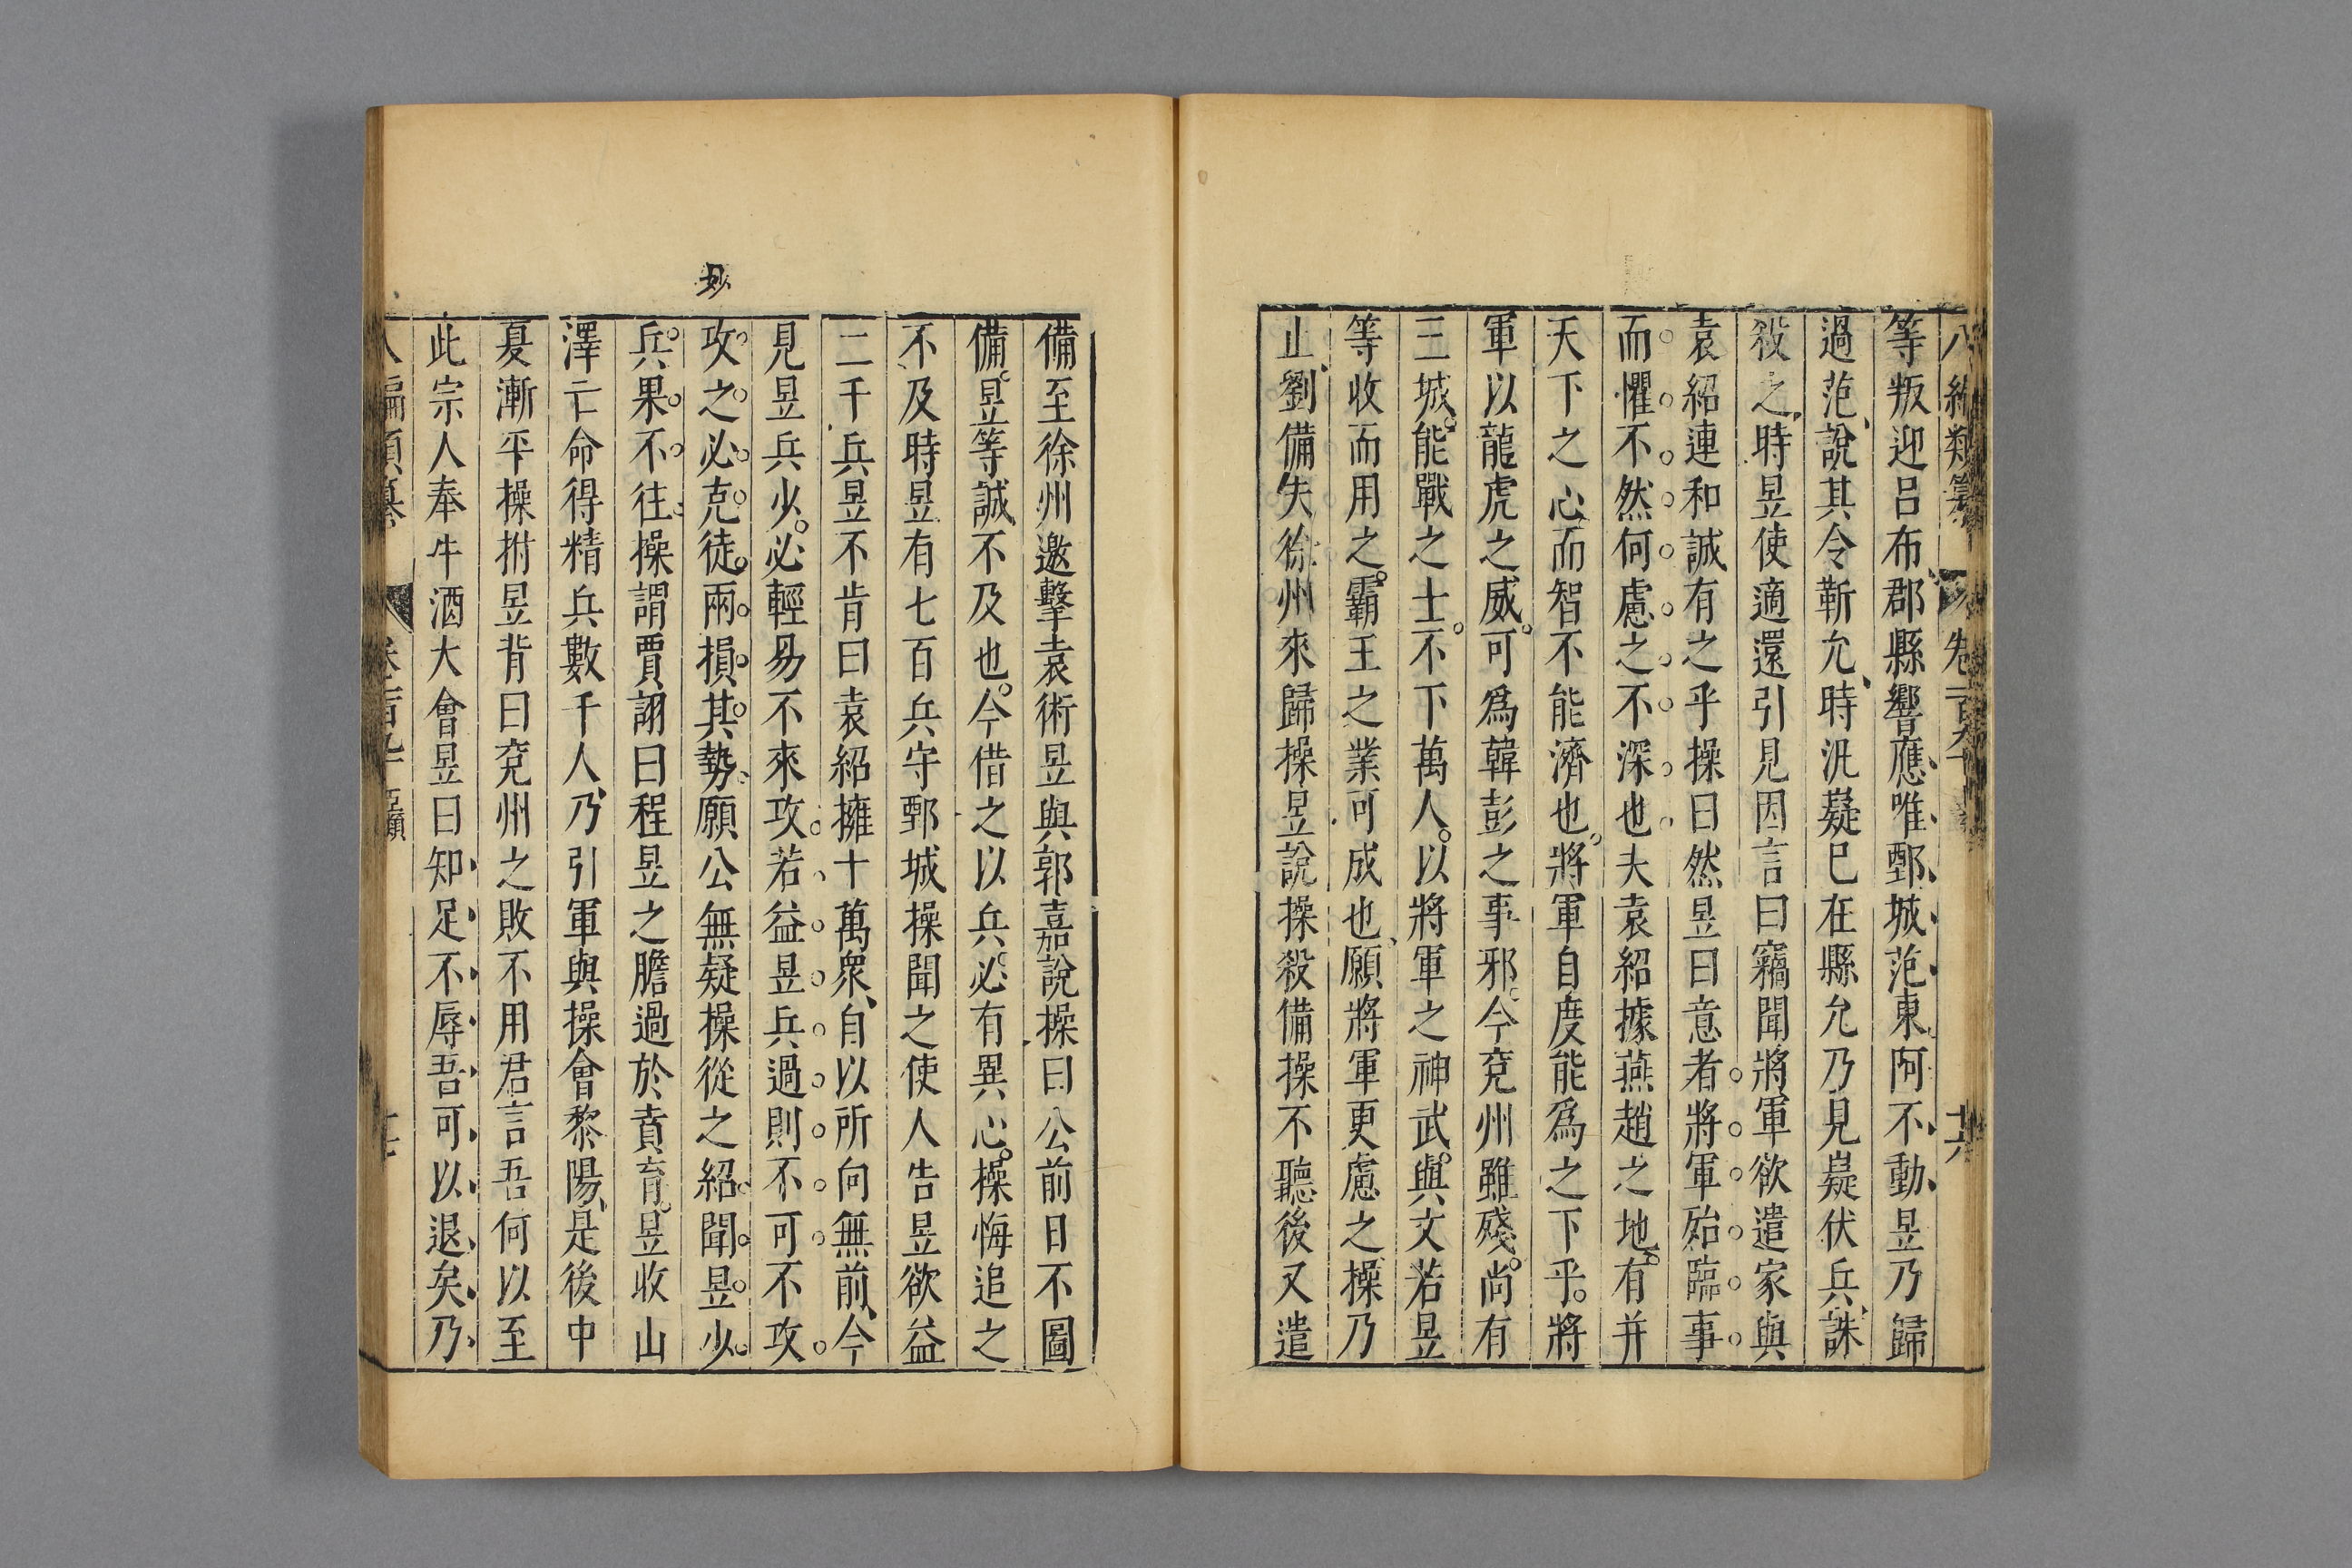 八編類纂 卷一百九十 十六
等叛迎呂布郡縣響應唯鄄城范東阿不動昱乃歸
過范說其令靳允時汎嶷已在縣允乃見嶷伏兵誅
殺之時昱使適還引見因言曰竊聞將軍欲遣家與
袁紹連和誠有之乎操曰然昱曰意者將軍殆臨事
而懼不然何慮之不深也夫袁紹據燕趙之地有并
天下之心而智不能濟也將軍自度能爲之下乎將
軍以龍虎之威可爲韓彭之事邪今兗州雖殘尚有
三城能戰之士不下萬人以將軍之神武與文若昱
等收而用之霸王之業可成也願將軍更慮之操乃
止劉備失徐州來歸操昱說操殺備操不聽後又遣
備至徐州邀擊袁術昱與郭嘉說操曰公前日不圖
備昱等誠不及也今借之以兵必有異心操悔追之
不及時昱有七百兵守鄄城操聞之使人告昱欲益
二千兵昱不肯曰袁紹擁十萬衆自以所向無前今
見昱兵少必輕易不來攻若益昱兵過則不可不攻
妙
攻之必克徒兩損其勢願公無疑操從之紹聞昱少
兵果不往操謂賈詡曰程昱之膽過於賁育昱收山
澤亡命得精兵數千人乃引軍與操會黎陽是後中
夏漸平操拊昱背曰兗州之敗不用君言吾何以至
此宗人奉牛酒大會昱曰知足不辱吾可以退矣乃
八編類纂 卷一百九十